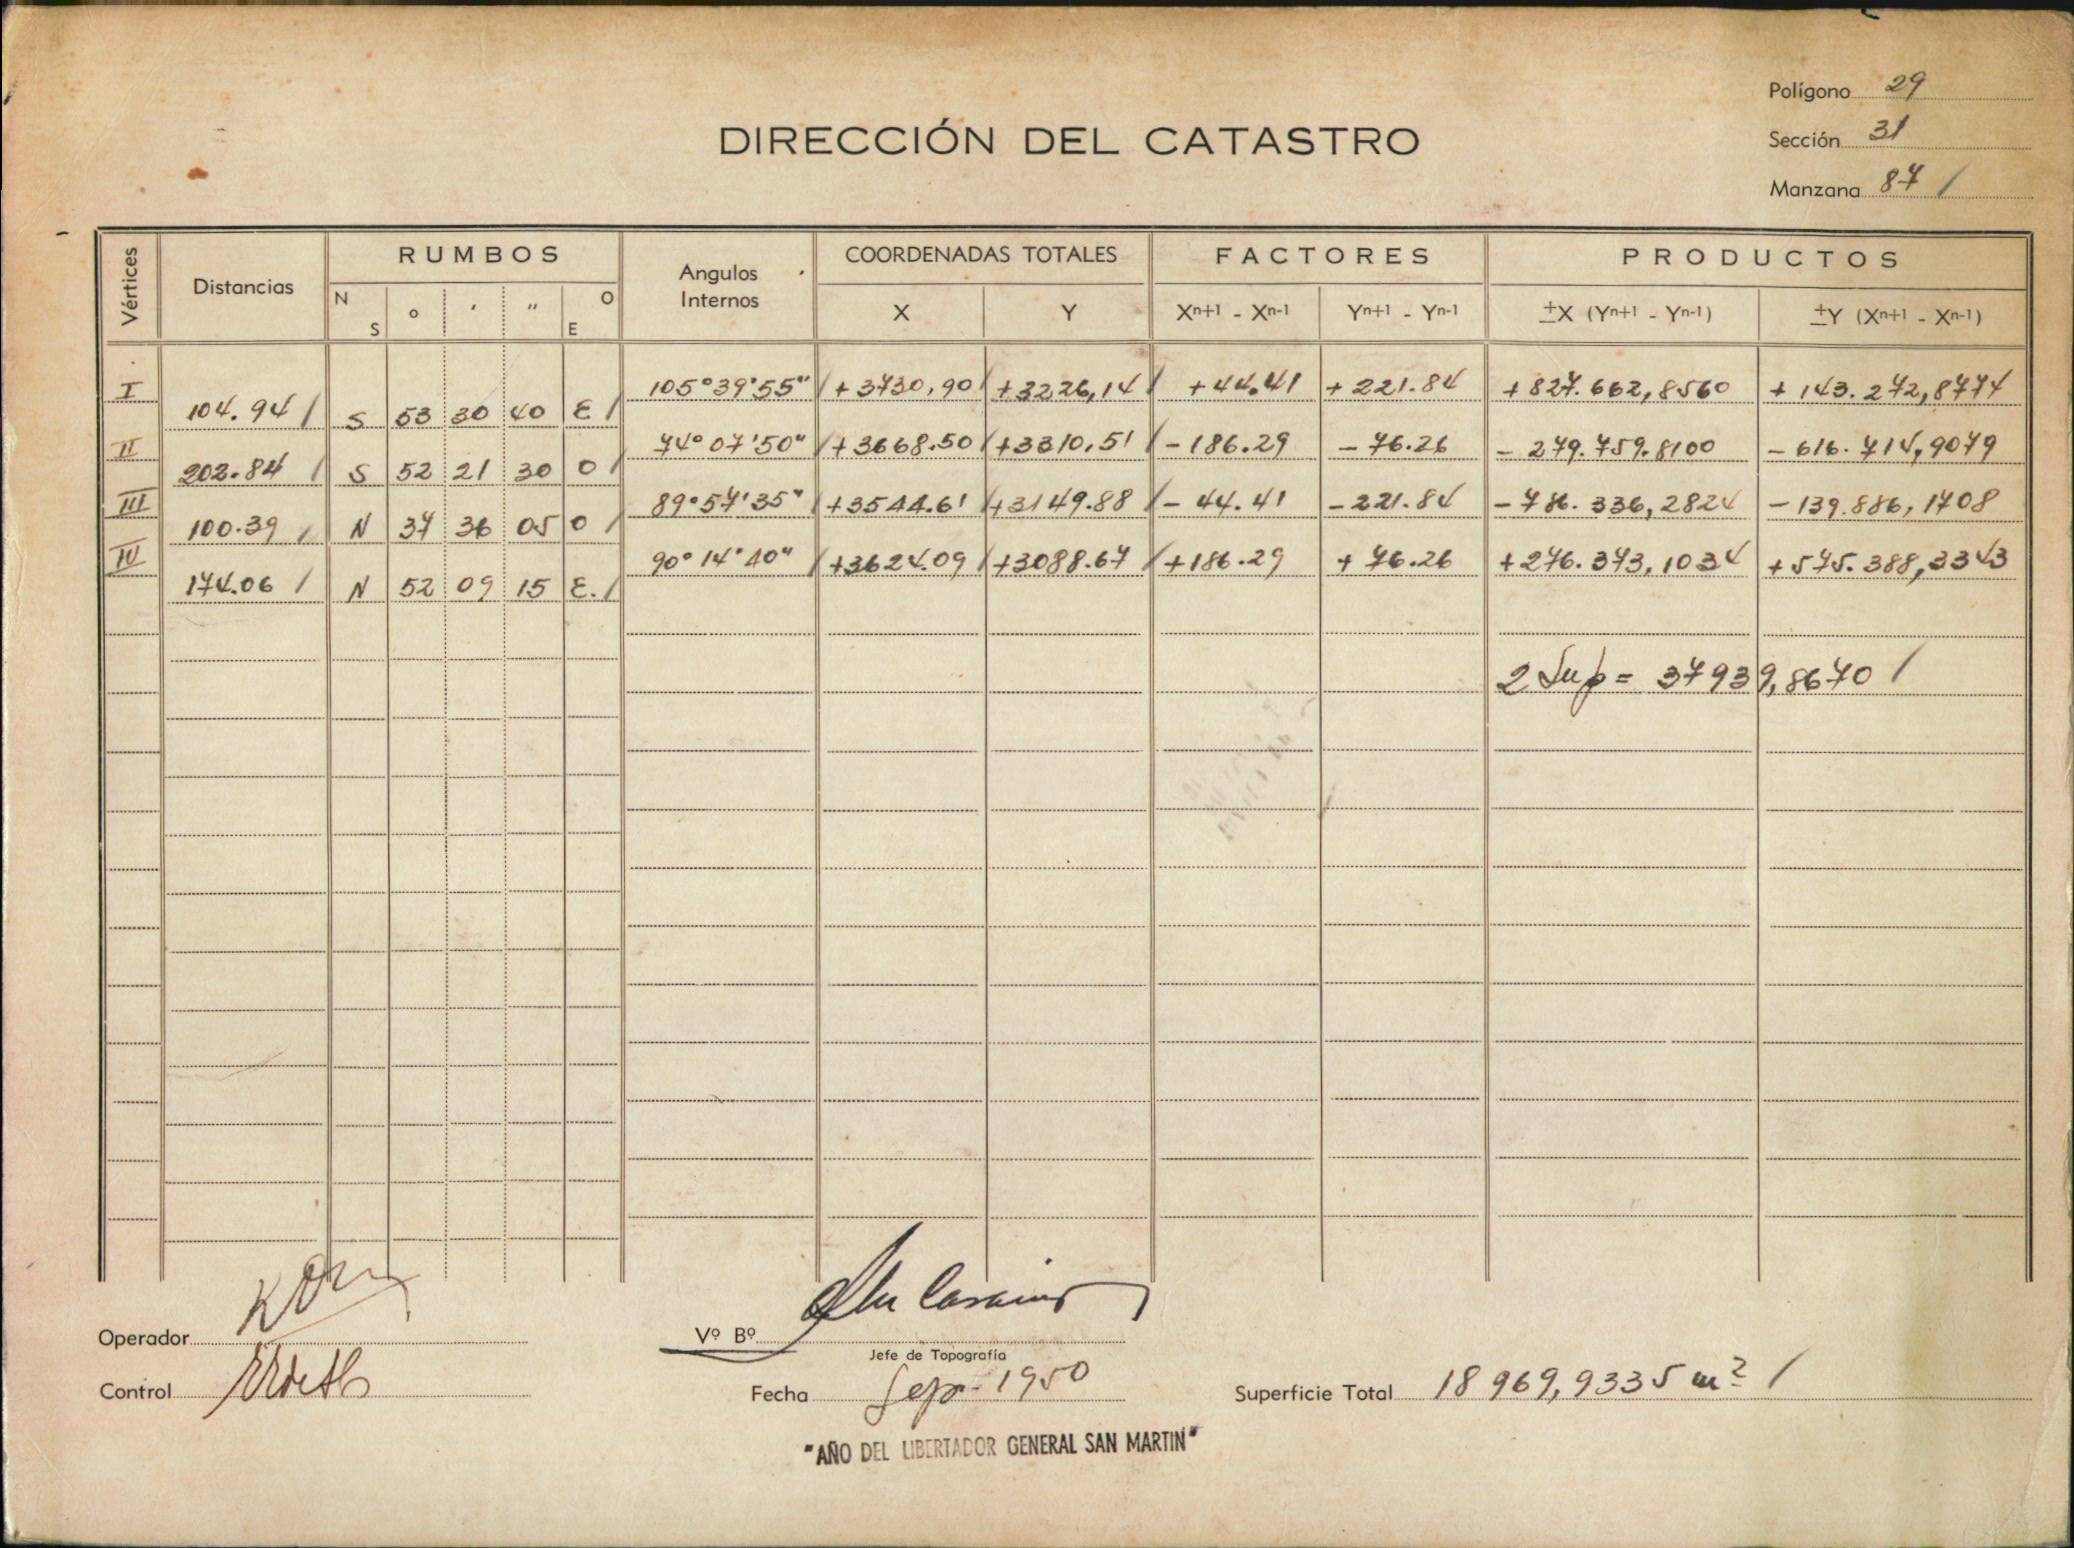 Polígono 29
DIRECCIÓN DEL CATASTRO
Sección 31
Manzana 87 /
Vértices Distancias RUMBOS Angulos Internos COORDENADAS TOTALES FACTORES PRODUCTOS
N S ° ' " O E X Y Xn+1 - Xn-1 Yn+1 - Yn-1 ±X (Yn+1 - Yn-1) ±Y (Xn+1 - Xn-1)
I 105°39'55" / +3730,90 / +3226,14 / +44.41 +221.84 +827.662,8560 +143.272,8774
104.94 / S 53 30 40 E /
II 74°07'50" / +3668.50 / +3310,51 / -186.29 -76.26 -279.759.8100 -616.714,9079
202.84 / S 52 21 30 O /
III 89°57'35" / +3544.61 / +3149.88 / -44.41 -221.84 -786.336,2824 -139.886,1708
100.39 / N 37 36 05 O /
IV 90°14'40" / +3624.09 / +3088.67 / +186.29 +76.26 +276.373,1034 +575.388,3343
174.06 / N 52 09 15 E. /
2 Sup = 37939,8670 /
Operador Vº Bº
Jefe de Topografía
Control Fecha Sep. 1950 Superficie Total 18969,9335 m2 /
"AÑO DEL LIBERTADOR GENERAL SAN MARTIN"